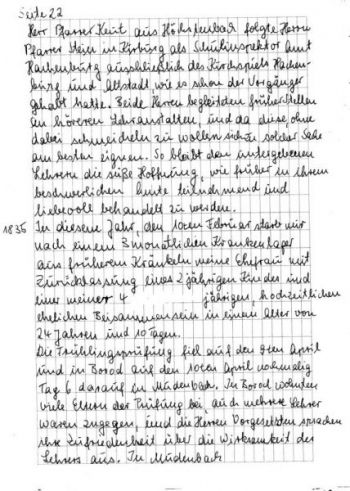 Seite 22
Herr Pfarrer Keut aus Höchstenbach folgte Herrn
Pfarrer Stein in Kirburg als Schulinspektor Amt
Hachenburg ausschließlich des Kirchspiels Hachen-
burg und Altstadt wie es schon der Vorgänger
gehabt hatte. Beide Herren begleiteten früher Stellen
an höheren Lehranstalten, und da diese, ohne
dabei schmeicheln zu wollen sich zu solcher Sache
am besten eignen. So bleibt den untergebenen
Lehrern die süße Hoffnung, wie früher in ihrem
beschwerlichen Amte teilnehmend und
liebevoll behandelt zu werden.
1836 In diesem Jahr, den 10ten Februar starb mir
nach einem 3 monatlichen Krankenlager
aus früherem Kränkeln meine Ehefrau mit
Zurücklassung eines 2 jährigen Kindes und
einer meiner 4 jährigen, hochzeitlichen
ehelichen Beisammensein in einem Alter von
24 Jahren und 10 Tagen.
Die Frühlingsprüfung fiel auf den 9ten April
und in Borod auf den 10ten April nochmalig
Tag 6 darauf in Mudenbach. In Borod wohnten
viele Eltern der Prüfung bei, auch mehrere Lehrer
waren zugegen, und die Herren Vorgesetzten sprachen
ihre Zufriedenheit über die Wirksamkeit des
Lehrers aus. In Mudenbach